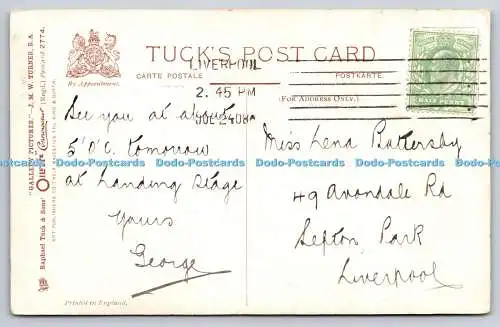 TUCK'S POST CARD
CARTE POSTALE
POSTKARTE.
By Appointment.
(FOR ADDRESS ONLY.)
LIVERPOOL
2. 45 PM
JUL 24 08
HALF PENNY
"GALLERY PICTURES." - J. M. W. TURNER, R.A.
Raphael Tuck & Sons' "Oilette" Connoisseur (Regd.) Postcard 2774.
See you at about
5 'O.C. tomorrow
at Landing Stage
Yours
George
Miss Lena Battersby
49 Avondale Rd
Sefton Park
Liverpool
Printed in England.
Dodo-Postcards Dodo-Postcards Dodo-Postcards Dodo-Postcards Dodo-Postcards